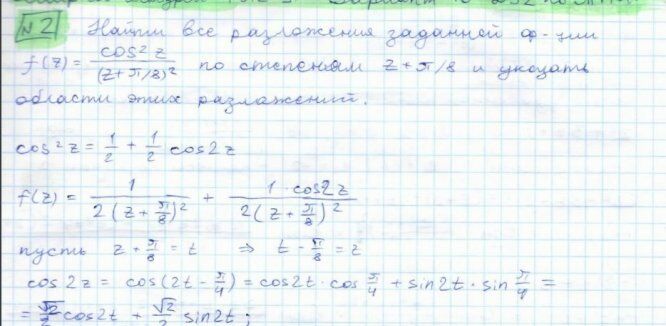 №2 Найти все разложения заданной ф-ции
f(z) = cos²z / (z+π/8)² по степеням z+π/8 и указать
области этих разложений.
cos²z = 1/2 + 1/2 cos2z
f(z) = 1 / 2(z+π/8)² + 1·cos2z / 2(z+π/8)²
пусть z+π/8 = t ⇒ t-π/8 = z
cos2z = cos(2t-π/4) = cos2t·cos π/4 + sin2t·sin π/4 =
= √2/2 cos2t + √2/2 sin2t;